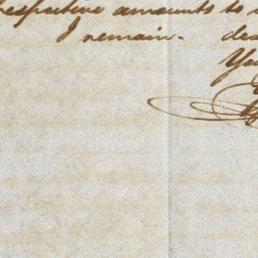 respective amounts to
I remain. des
You